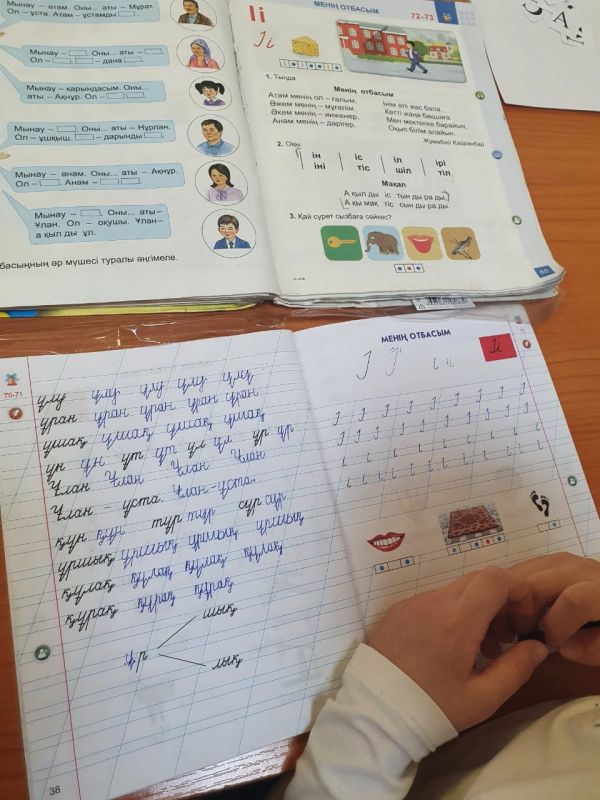 Мынау – атам. Оны... аты – Мұрат.
Ол – ұста. Атам – ұстамды
Мынау – Оны... аты –
Ол – – дана
Мынау – қарындасым. Оны...
аты – Ақнұр. Ол –
Мынау – Оны... аты – Нұрлан.
Ол – ұшқыш. – дарынды
Мынау – анам. Оны... аты – Ақнұр.
Ол – Анам –
Мынау – Оны... аты–
Ұлан. Ол – оқушы. Ұлан–
а қыл ды ұл.
басыңның әр мүшесі туралы әңгімеле.
Іі
МЕНІҢ ОТБАСЫМ
72–73
Іі
1. Тыңда.
Менің отбасым
Атам менің ол – ғалым,
Әжем менің – мұғалім.
Әкем менің – инженер,
Анам менің – дәрігер.
Інім әлі жас бала,
Кетті жаңа бақшаға.
Мен мектепке барайын,
Оқып білім алайын.
Жұмабай Қайранбай
2. Оқы.
ін іс іл ірі
іні тіс шіл тіл
Мақал
А қыл ды іс тын ды ра ды,
А қы мақ тіс сын ды ра ды.
3. Қай сурет сызбаға сәйкес?
65
70-71
ұлу ұлу ұлу ұлу ұлу
ұран ұран ұран ұран ұран
ұшақ ұшақ ұшақ ұшақ
ұн ұн ұт ұт ұл ұл ұр ұр
Ұлан Ұлан Ұлан Ұлан
Ұлан – ұста. Ұлан – ұста.
құн құн тұр тұр сұр сұр
ұршық ұршық ұршық ұршық
құлақ құлақ құлақ құлақ
құрақ құрақ құрақ
шық
ұр
лық
38
МЕНІҢ ОТБАСЫМ
72
Іі
І І і і
І І І І І І І І І
І І І І І І І І І
і і і і і і і і
і і і і і і і і і